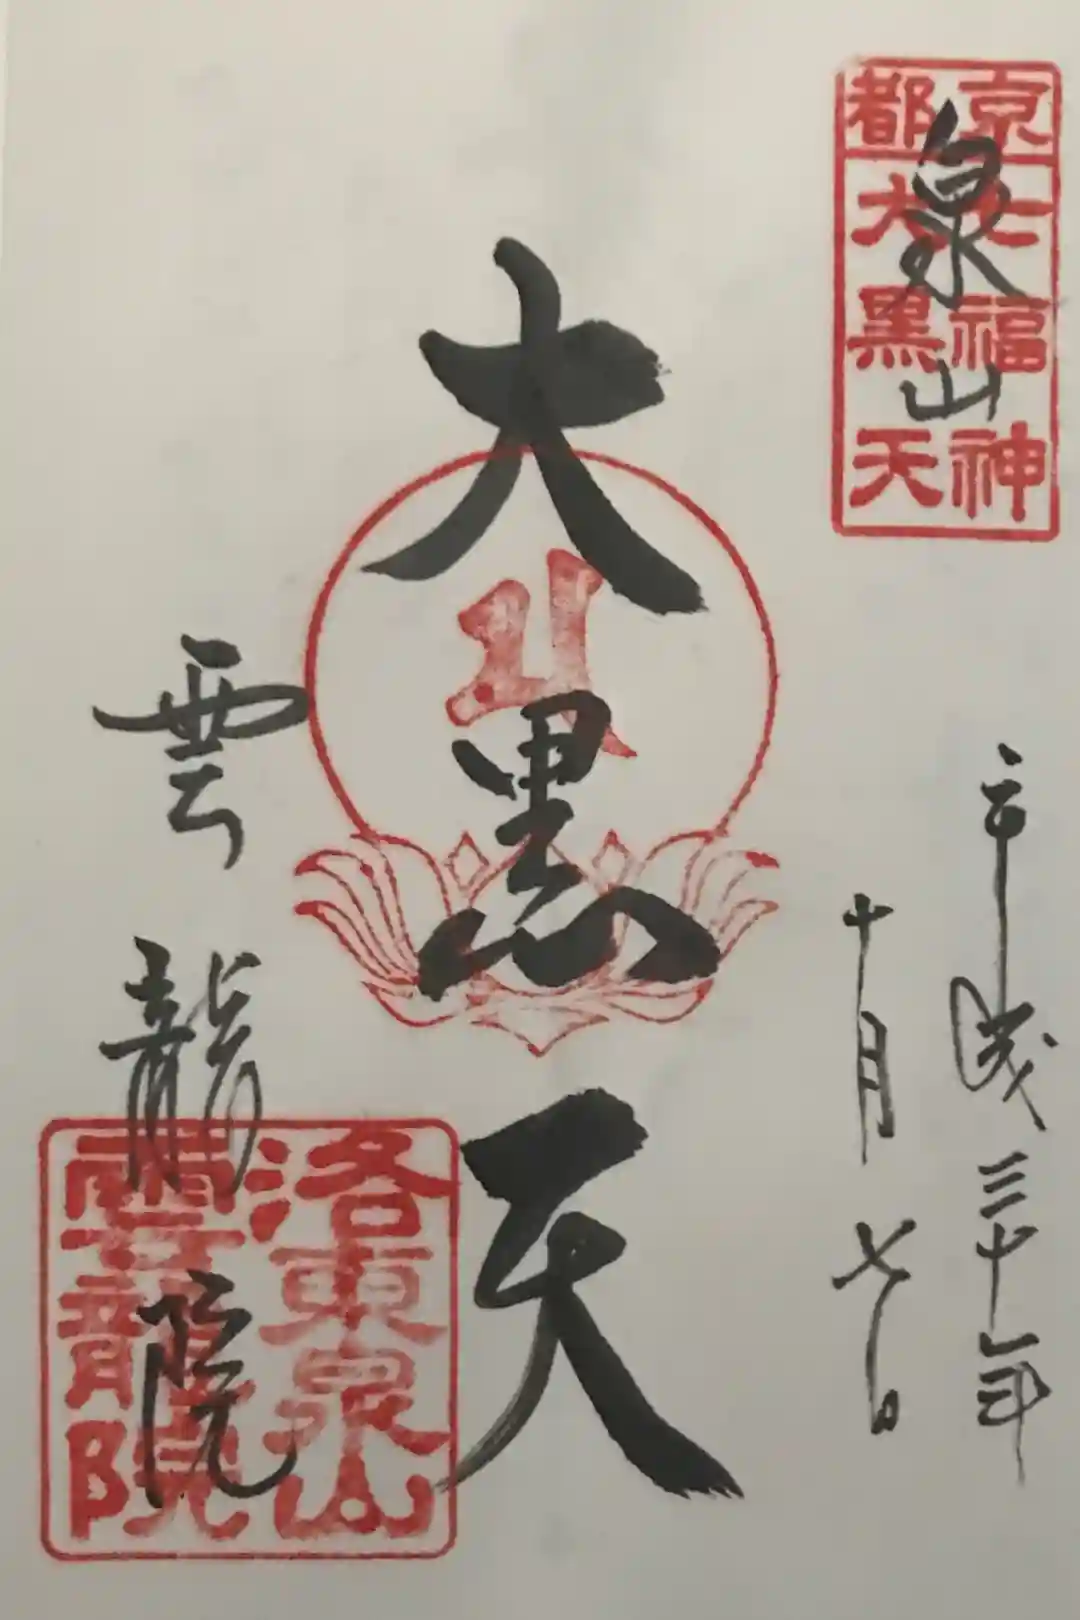 京都
七福神
大黒天
泉山
平成三十年
十月七日
大黒天
雲龍院
洛東泉山
雲龍院